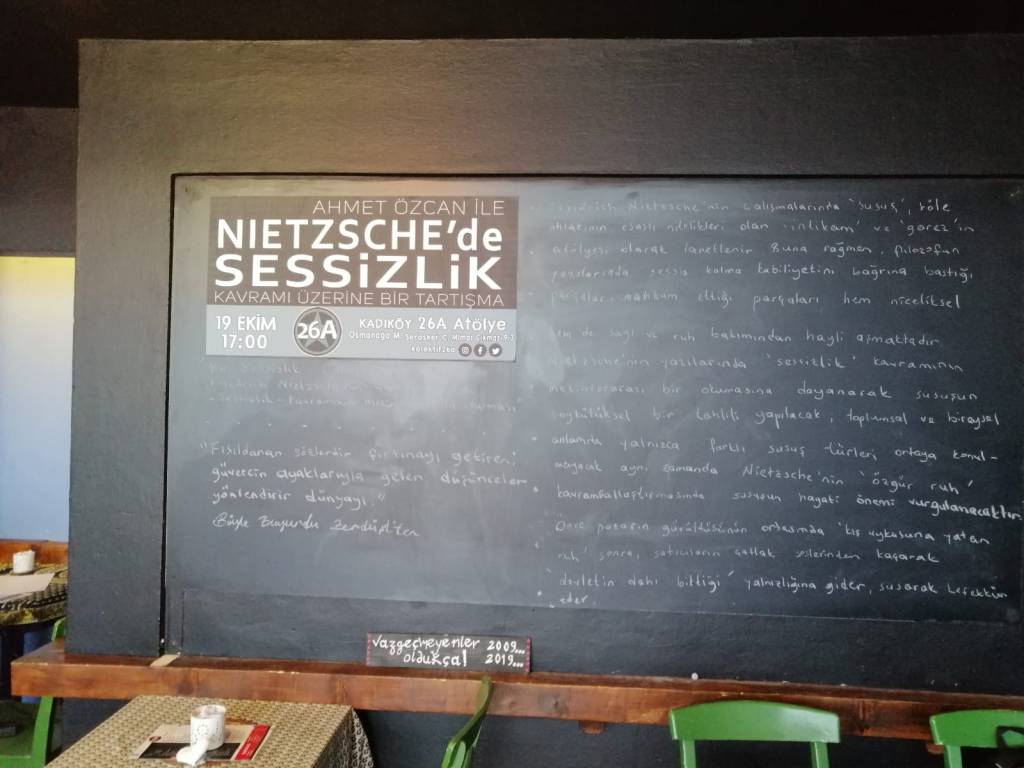 AHMET ÖZCAN İLE
NIETZSCHE'de
SESSiZLiK
KAVRAMI ÜZERİNE BİR TARTIŞMA
19 EKİM
17:00
26A
KADIKÖY 26A Atölye
Osmanağa M. Serasker C. Mimar Çıkmazı 9-2
kolektif26a
Friedrich Nietzsche
"Fısıldanan sözlerdir fırtınayı getiren;
güvercin ayaklarıyla gelen düşünceler
yönlendirir dünyayı."
Böyle Buyurdu Zerdüşt'ten
Nietzsche'nin çalışmalarında 'susuş', köle
ahlakının esaslı nitelikleri olan 'intikam' ve 'garez'in
atölyesi olarak lanetlenir. Buna rağmen, filozofun
yazılarında sessiz kalma kabiliyetini bağrına bastığı
parçalar, mahkum ettiği parçaları hem niceliksel
hem de sayı ve ruh bakımından hayli aşmaktadır.
Nietzsche'nin yazılarında 'sessizlik' kavramının
bir okumasına dayanarak susuşun
soykütüksel bir tahlili yapılacak; toplumsal ve bireysel
anlamda yalnızca farklı susuş türleri ortaya konul-
mayacak aynı zamanda Nietzsche'nin 'özgür ruh'
kavramsallaştırmasında susuşun hayati önemi vurgulanacaktır.
Önce pazarın gürültüsünün ortasında 'kış uykusuna yatan
ruh' sonra, satıcıların çatlak seslerinden kaçarak
'devletin dahi bittiği' yalnızlığına gider, susarak tefekkür
eder.
Vazgeçmeyenler 2009...
oldukça! 2019...